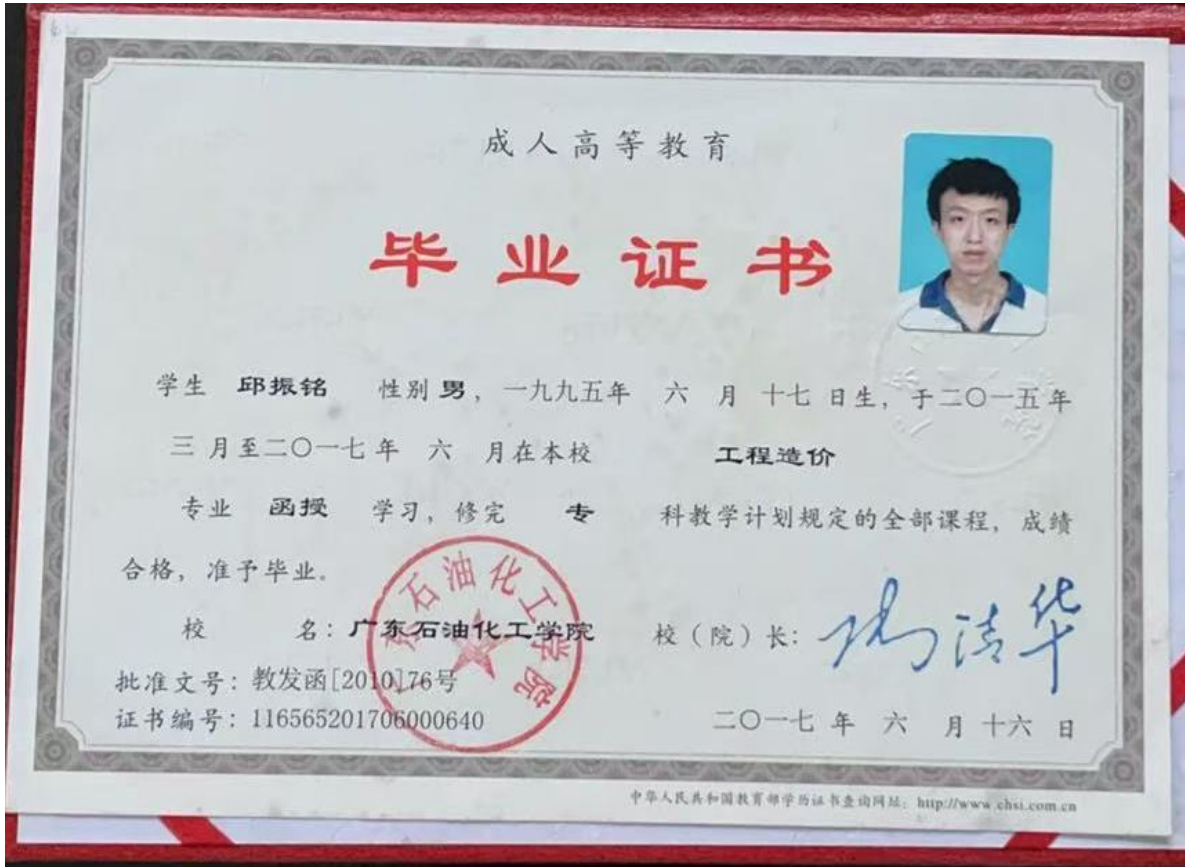 成人高等教育
毕业证书
学生 邱振铭 性别 男，一九九五年 六 月 十七 日生，于二〇一五年
三 月至二〇一七年 六 月在本校 工程造价
专业 函授 学习，修完 专 科教学计划规定的全部课程，成绩
合格，准予毕业。
校 名：广东石油化工学院 校（院）长：
批准文号：教发函[2010]76号
证书编号：116565201706000640
二〇一七 年 六 月 十六 日
中华人民共和国教育部学历证书查询网址：http://www.chsi.com.cn